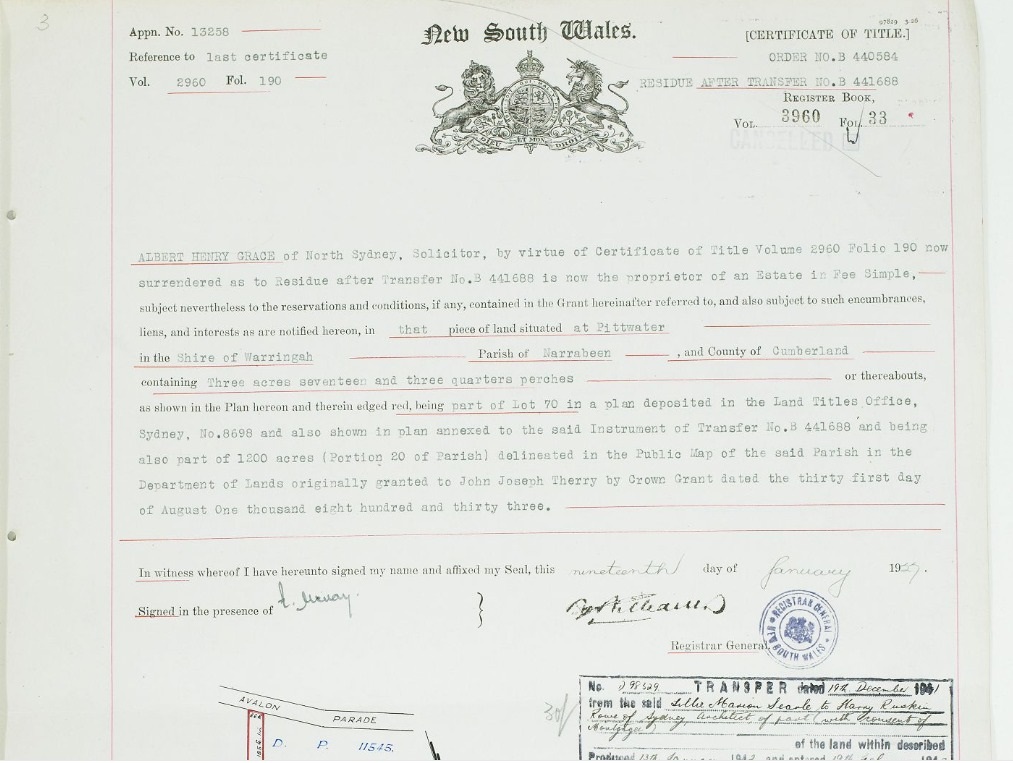 3
Appn. No. 13258
Reference to last certificate
Vol. 2960 Fol. 190
New South Wales.
97829 3.26
[CERTIFICATE OF TITLE.]
ORDER NO.B 440584
RESIDUE AFTER TRANSFER NO.B 441688
REGISTER BOOK,
VOL. 3960 FOL. 33
CANCELLED
DIEU ET MON DROIT
ALBERT HENRY GRACE of North Sydney, Solicitor, by virtue of Certificate of Title Volume 2960 Folio 190 now
surrendered as to Residue after Transfer No.B 441688 is now the proprietor of an Estate in Fee Simple,
subject nevertheless to the reservations and conditions, if any, contained in the Grant hereinafter referred to, and also subject to such encumbrances,
liens, and interests as are notified hereon, in that piece of land situated at Pittwater
in the Shire of Warringah Parish of Narrabeen , and County of Cumberland
containing Three acres seventeen and three quarters perches or thereabouts,
as shown in the Plan hereon and therein edged red, being part of Lot 70 in a plan deposited in the Land Titles Office,
Sydney, No.8698 and also shown in plan annexed to the said Instrument of Transfer No.B 441688 and being
also part of 1200 acres (Portion 20 of Parish) delineated in the Public Map of the said Parish in the
Department of Lands originally granted to John Joseph Therry by Crown Grant dated the thirty first day
of August One thousand eight hundred and thirty three.
In witness whereof I have hereunto signed my name and affixed my Seal, this nineteenth day of January 1927.
Signed in the presence of
Registrar General.
REGISTRAR GENERAL NEW SOUTH WALES
AVALON PARADE
D. P. 11545.
No. TRANSFER dated 19th December 1941
from the said Lillie Marion Searle to Harry Ruskin
Rowe of Sydney Architect of part (with consent of
Mortgagee)
of the land within described
Produced 13th 1942 and entered 19th